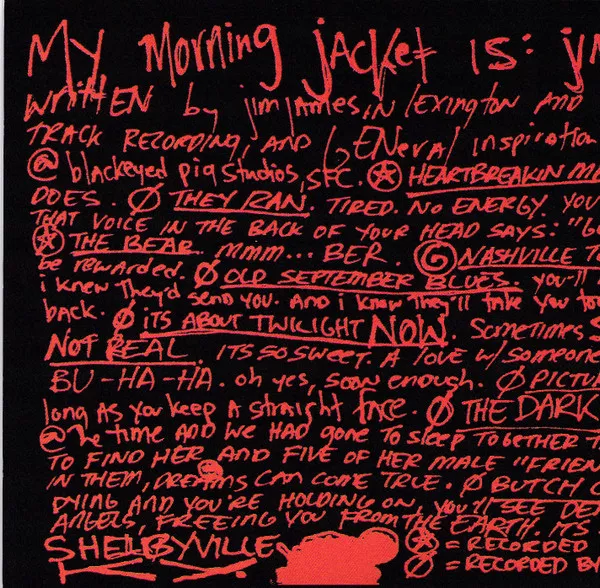 My Morning jacket is: 
WRITTEN by jim james, iN lexington AND
TRACK RECORDING, AND GENeral inspiration
@ blackeyed pig studios, SFC. HEARTBREAKIN MA
DOES. Ø THEY RAN. TIRED. NO ENERGY. YOU
THAT VOICE IN THE BACK OF YOUR HEAD SAYS:
THE BEAR. MMM... BER. NASHVILLE TO
be rewarded. Ø OLD SEPTEMBER BLUES. you'll
i knew They'd send you. AND i know They'll take you
back. Ø iTS ABOUT TWILIGHT NOW. Sometimes
NOT REAL. ITS SO SWEET. A lOVE w/ someone
BU-HA-HA. oh yes, soon enough. Ø PICTU
long AS You keep A straight face. Ø THE DARK
@ The time AND WE HAD gone TO SLEEP TOGETHER
TO FIND HER AND FIVE OF HER MALE "FRIEN
IN THEM, DREAMS CAN COME TRUE. Ø BUTCH
DYING AND YOU'RE HOLDING ON, you'll SEE
ANGELS, FREEING YOU FROM THE EARTH. ITS
SHELBYVILLE = RECORDED
KY. Ø = RECORDED BY